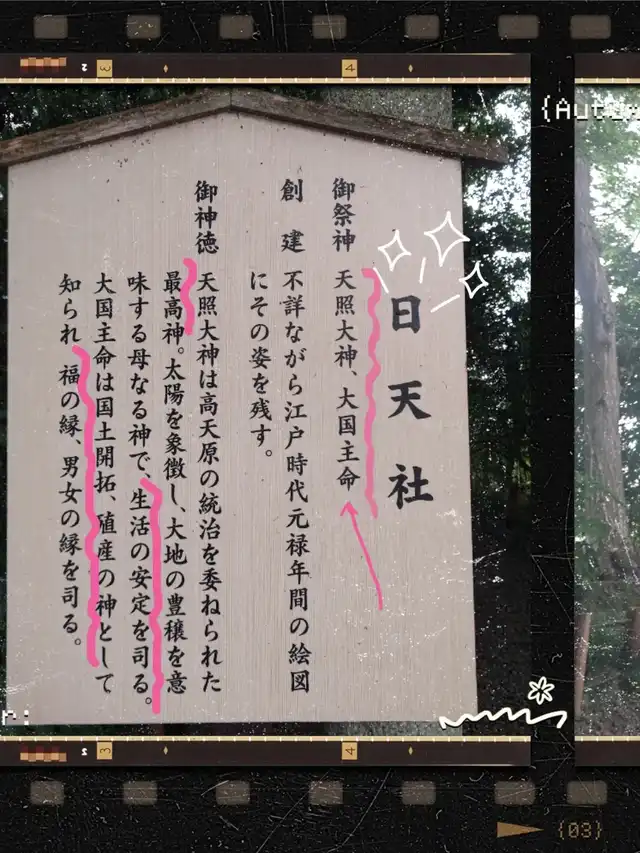 日天社
御祭神 天照大神、大国主命
創建 不詳ながら江戸時代元禄年間の絵図
にその姿を残す。
御神徳 天照大神は高天原の統治を委ねられた
最高神。太陽を象徴し、大地の豊穣を意
味する母なる神で、生活の安定を司る。
大国主命は国土開拓、殖産の神として
知られ 福の縁、男女の縁を司る。
{Autu
r:
3
4
2
3
4
{03}